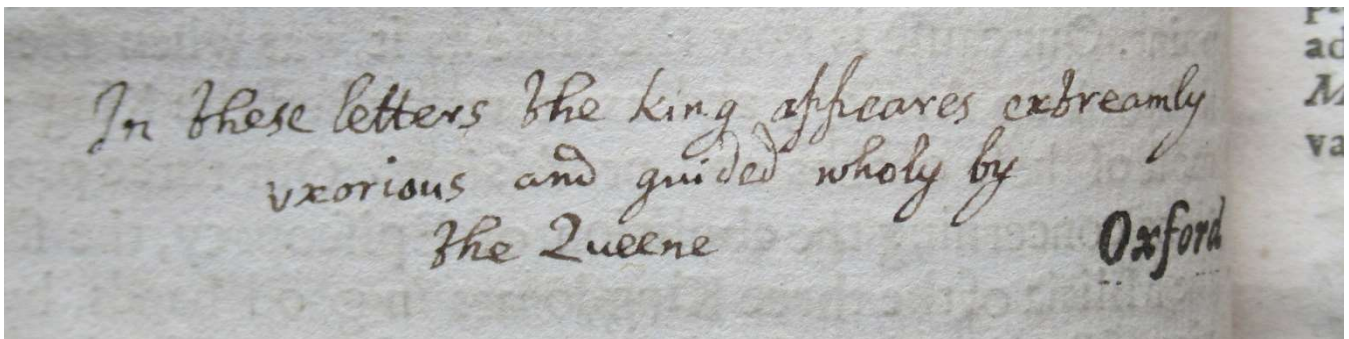 In these letters the king appeares extreamly
vxorious and guided wholy by
the Queene
Oxford
ad
M
va